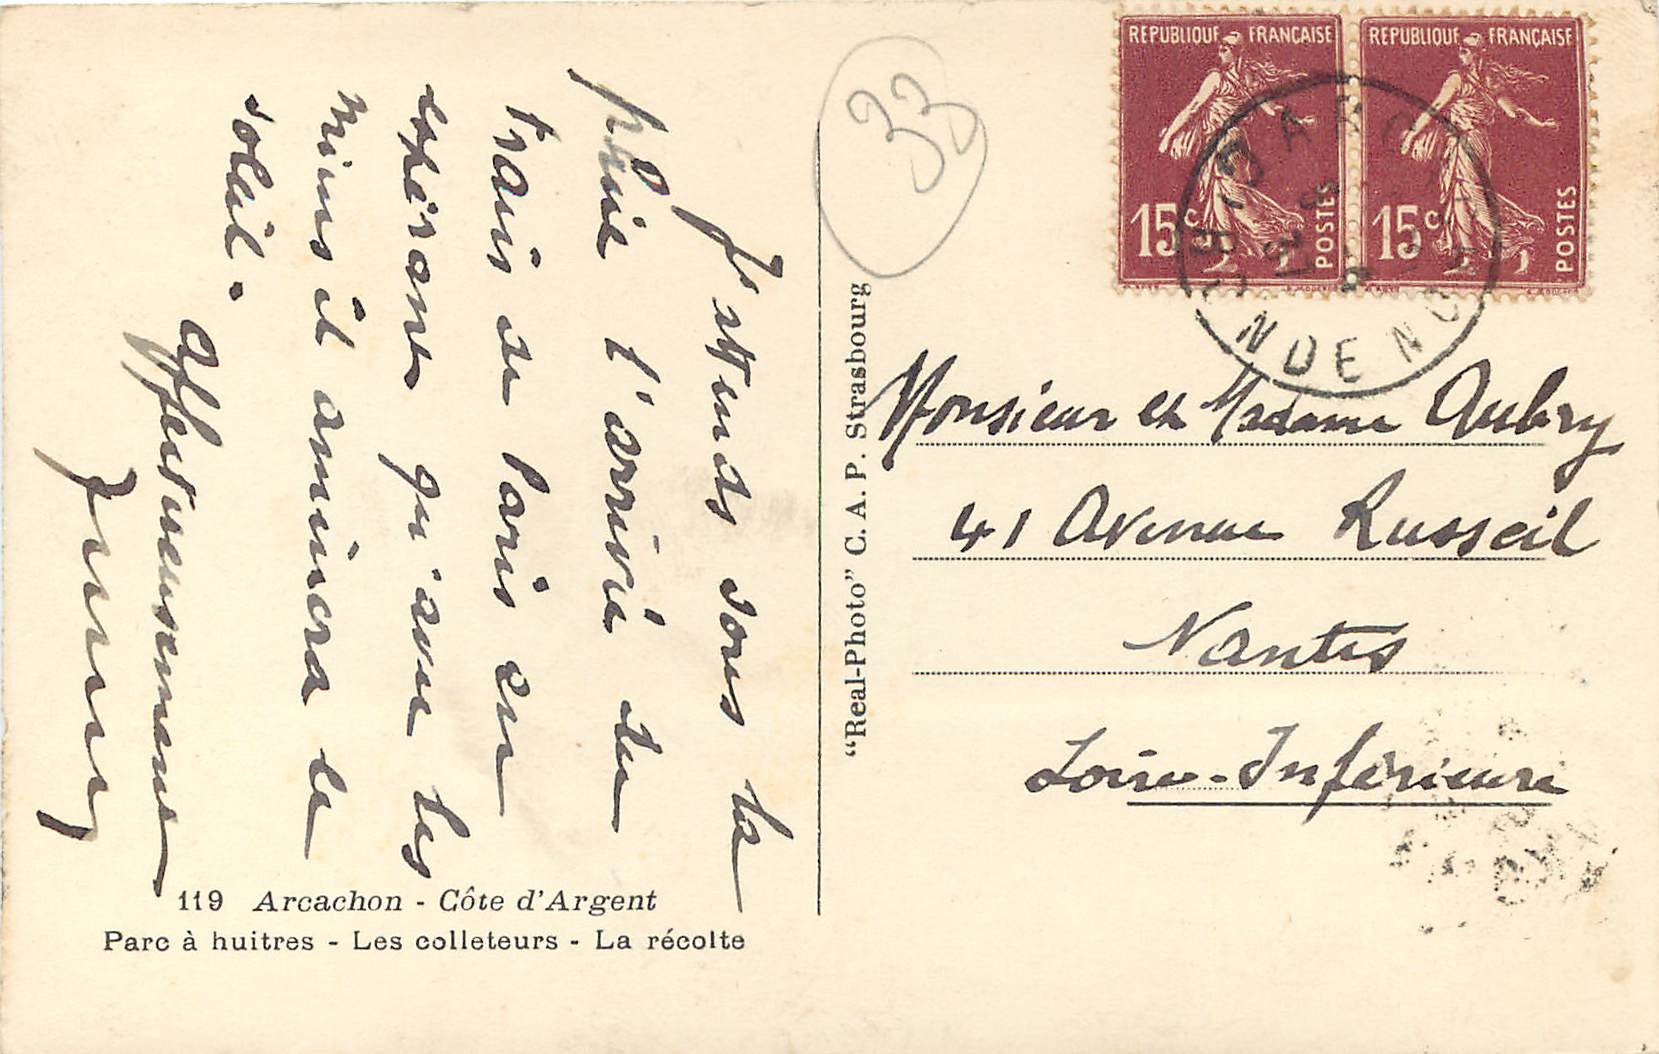 J'attends sous la
pluie l'arrivée du
train de Paris en
espérant qu'avec les
miens il amènera le
soleil.
Affectueusement
119 Arcachon - Côte d'Argent
Parc à huitres - Les colleteurs - La récolte
"Real-Photo" C. A. P. Strasbourg
33
REPUBLIQUE FRANÇAISE
15c POSTES
REPUBLIQUE FRANÇAISE
15c POSTES
Monsieur et Madame Aubry
41 Avenue Russeil
Nantes
Loire-Inférieure